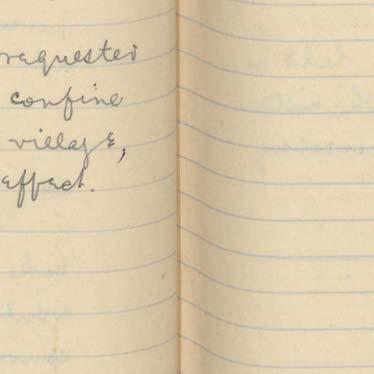 requested
confine
village,
effect.